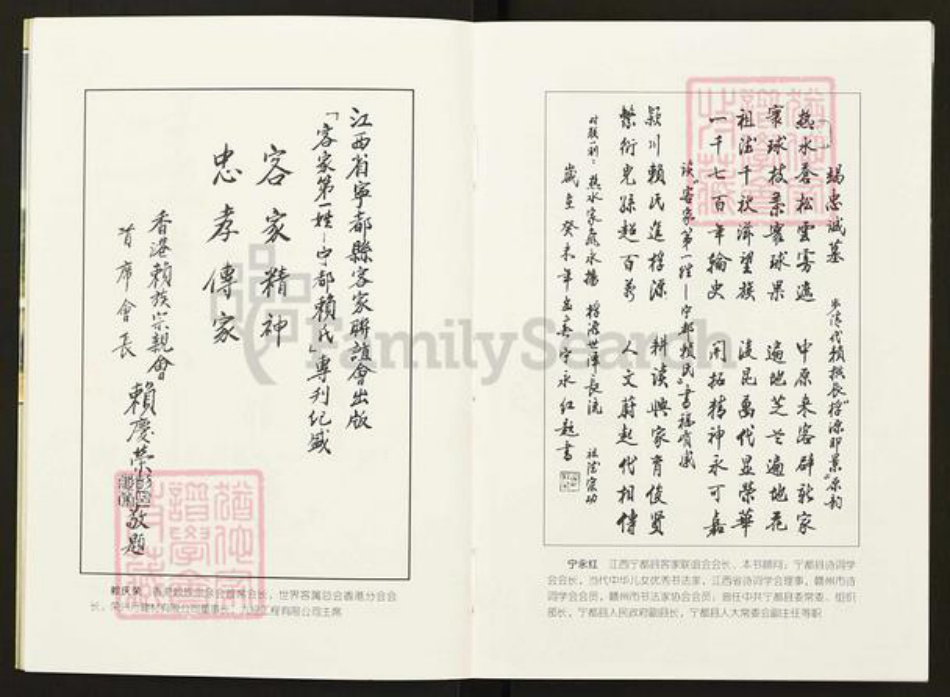 江西省寧都縣客家聯誼會出版
「客家第一姓—宁都賴氏」專刊紀盛
客家精神
忠孝傳家
香港賴族宗親會
首席會長 賴慶榮 敬題
赖庆荣,香港赖族宗亲会首席会长,世界客属总会香港分会会
长,
工程有限公司主席
謁忠誠墓
燕水蒼松雲雾遮 中原来客辟新家
寰球枝葉寰球果 遍地芝兰遍地花
祖法千秋洋望族 後昆萬代显榮華
一千七百年輪史 開拓精神永可嘉
读“客家第一姓—宁都赖氏”書稿有感
颍川賴氏進桴源 耕读興家育俊贤
繁衍兒孫超百萬 人文蔚起代相傳
歲在癸未年 宁永红題書
FamilySearch
宁永红 江西宁都县客家联谊会会长、本书顾问,宁都县诗词学
会会长,当代中华儿女优秀书法家,江西省诗词学会理事,赣州市诗
词学会会员,赣州市书法家协会会员;曾任中共宁都县委常委、组织
部长,宁都县人民政府副县长,宁都县人大常委会副主任等职